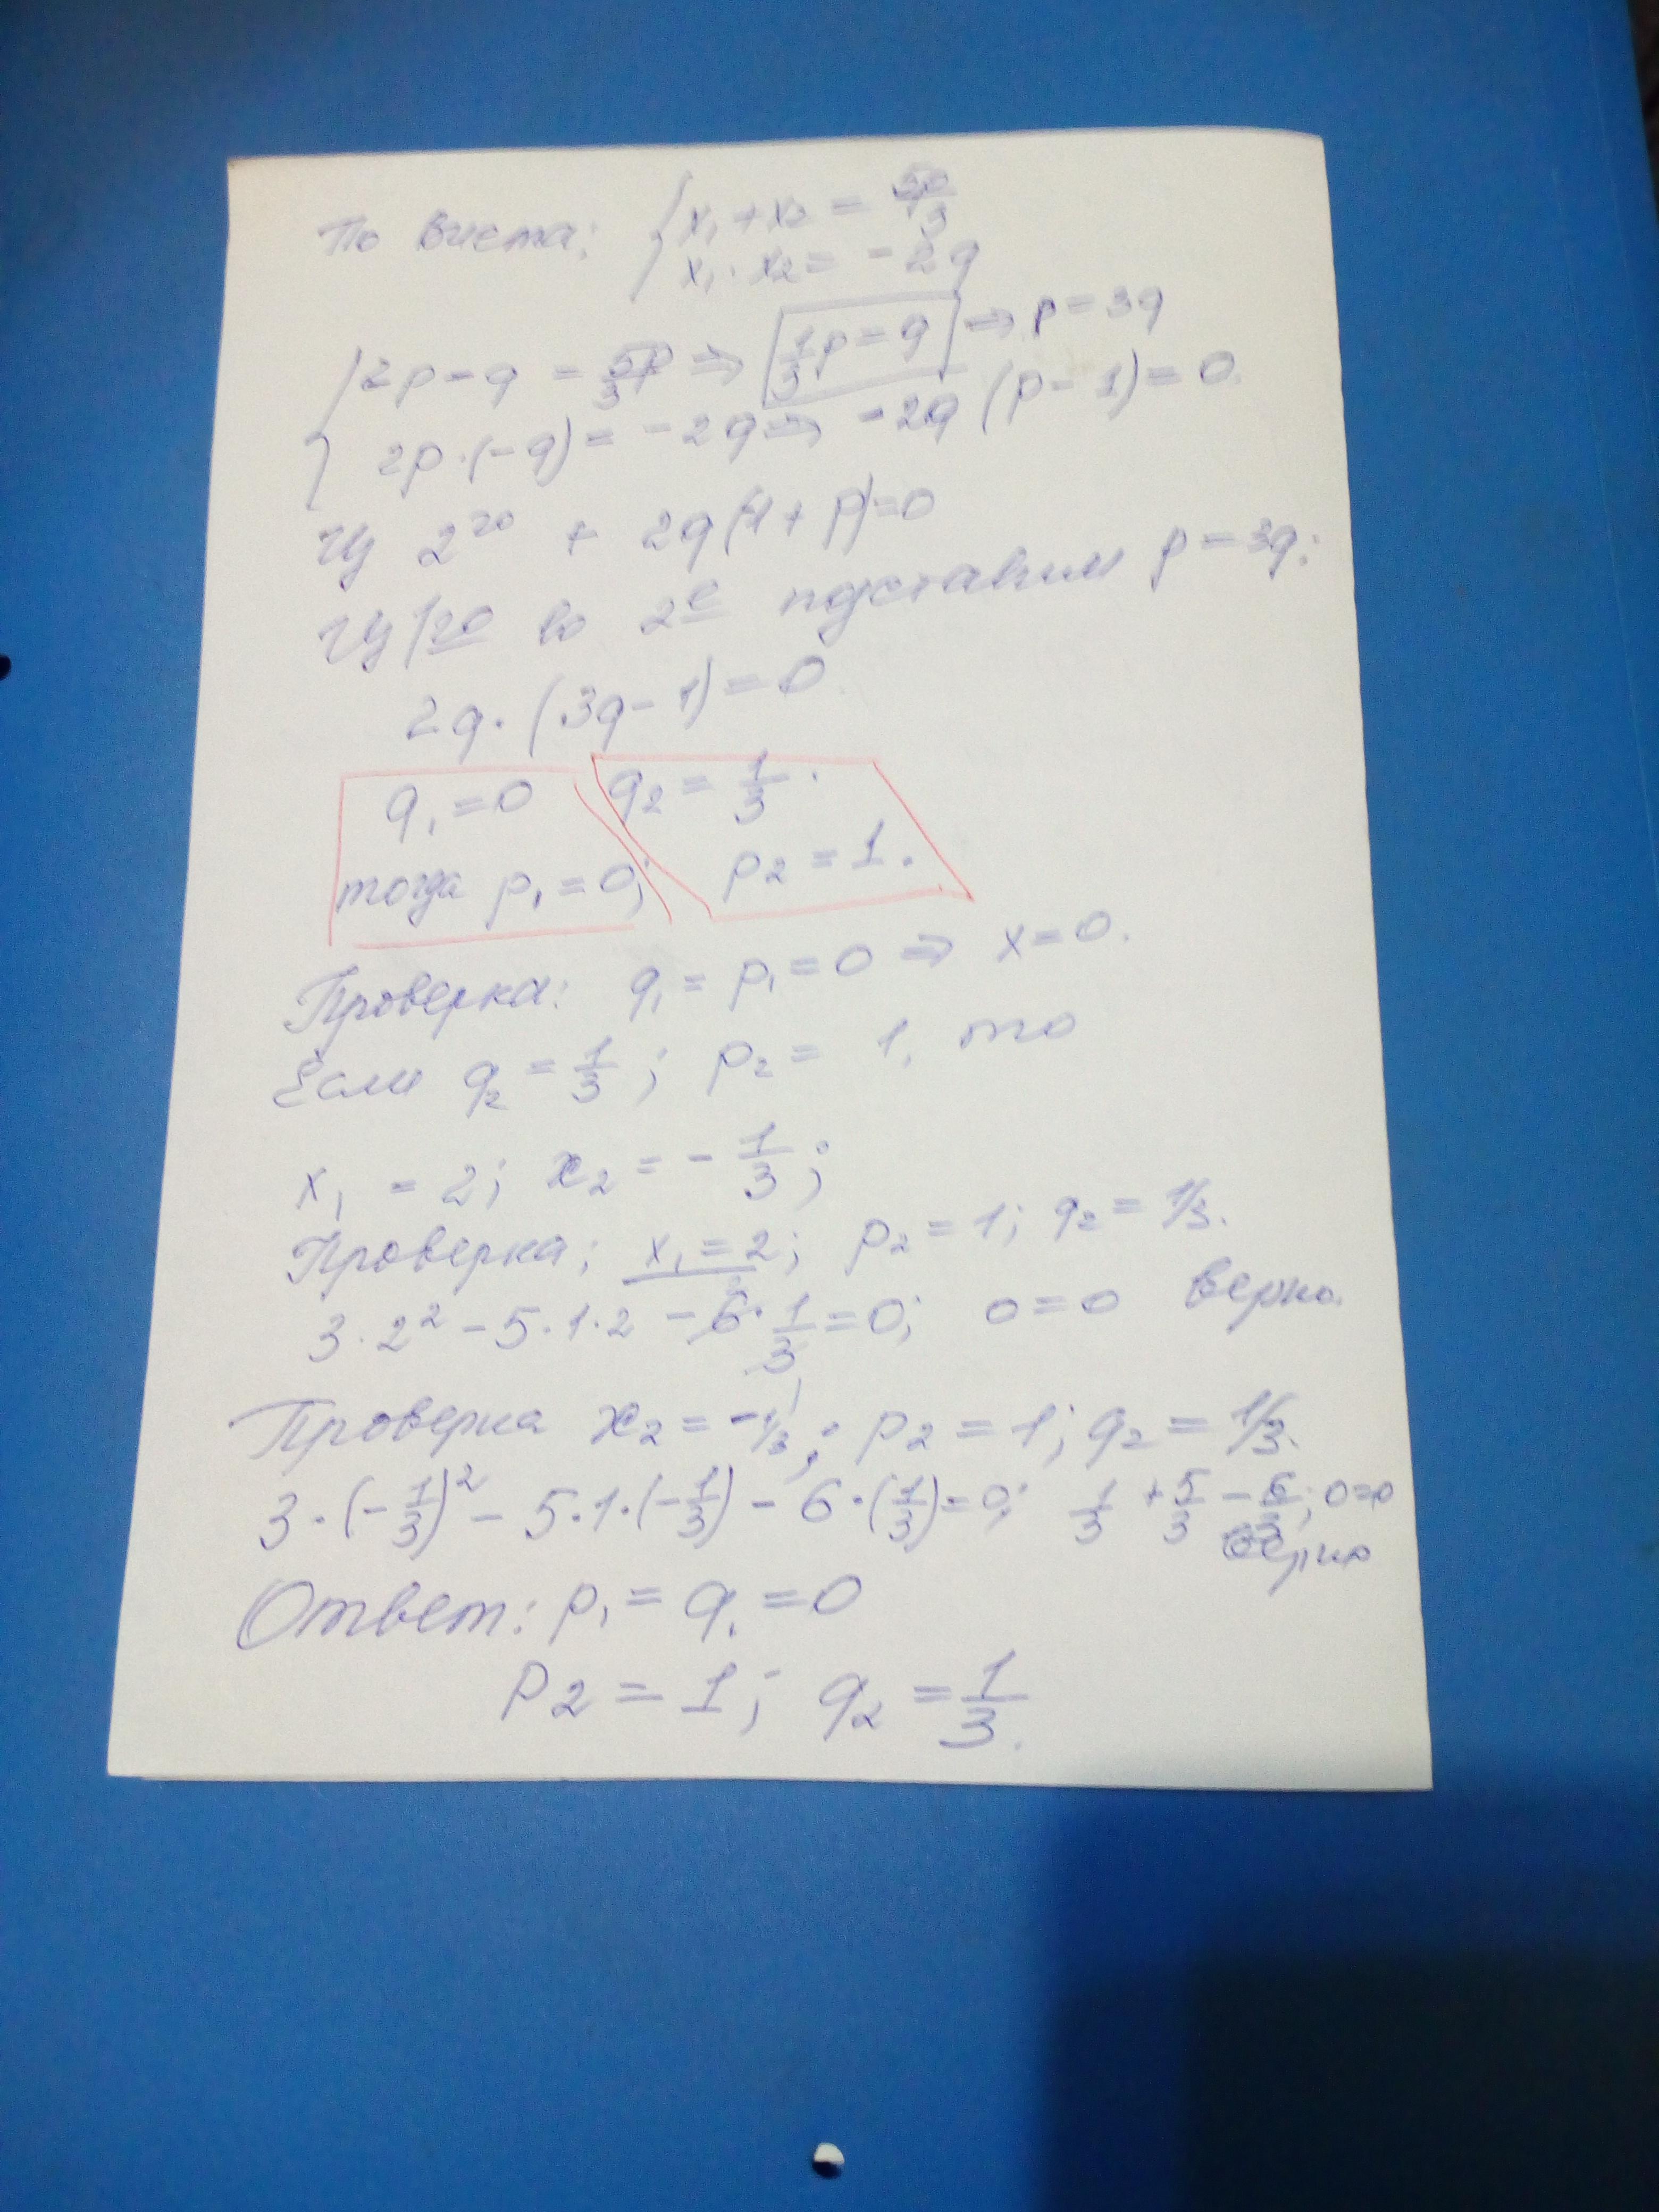 По Виета: { x₁ + x₂ = 5p/3
x₁ · x₂ = -2q
{ 2p - q = 5p/3 ⇒ 1/3 p = q ⇒ p = 3q
2p · (-q) = -2q ⇒ -2q (p - 1) = 0
Из 2го 2q(-1 + p) = 0
Из 1го во 2е подставим p = 3q:
2q · (3q - 1) = 0
q₁ = 0 q₂ = 1/3.
тогда p₁ = 0; p₂ = 1.
Проверка: q₁ = p₁ = 0 ⇒ x = 0.
Если q₂ = 1/3; p₂ = 1, то
x₁ = 2; x₂ = - 1/3;
Проверка; x₁ = 2; p₂ = 1; q₂ = 1/3.
3 · 2² - 5 · 1 · 2 - 6 · 1/3 = 0; 0 = 0 верно.
Проверка x₂ = -1/3; p₂ = 1; q₂ = 1/3.
3 · (-1/3)² - 5 · 1 · (-1/3) - 6 · (1/3) = 0; 1/3 + 5/3 - 6/3; 0=0
верно
Ответ: p₁ = q₁ = 0
p₂ = 1; q₂ = 1/3.